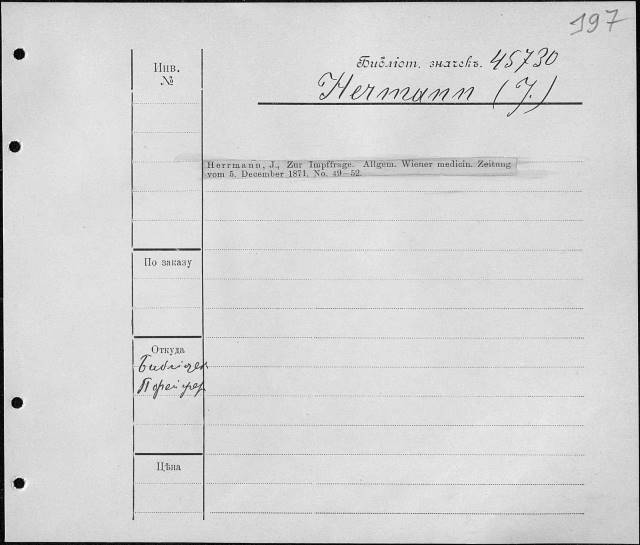 197
Инв.
№
Библіот. значекъ. 45730
Hermann (J.)
Herrmann, J., Zur Impffrage. Allgem. Wiener medicin. Zeitung
vom 5. December 1871. No. 49–52.
По заказу
Откуда
Библіотек
Пфейфер
Цѣна